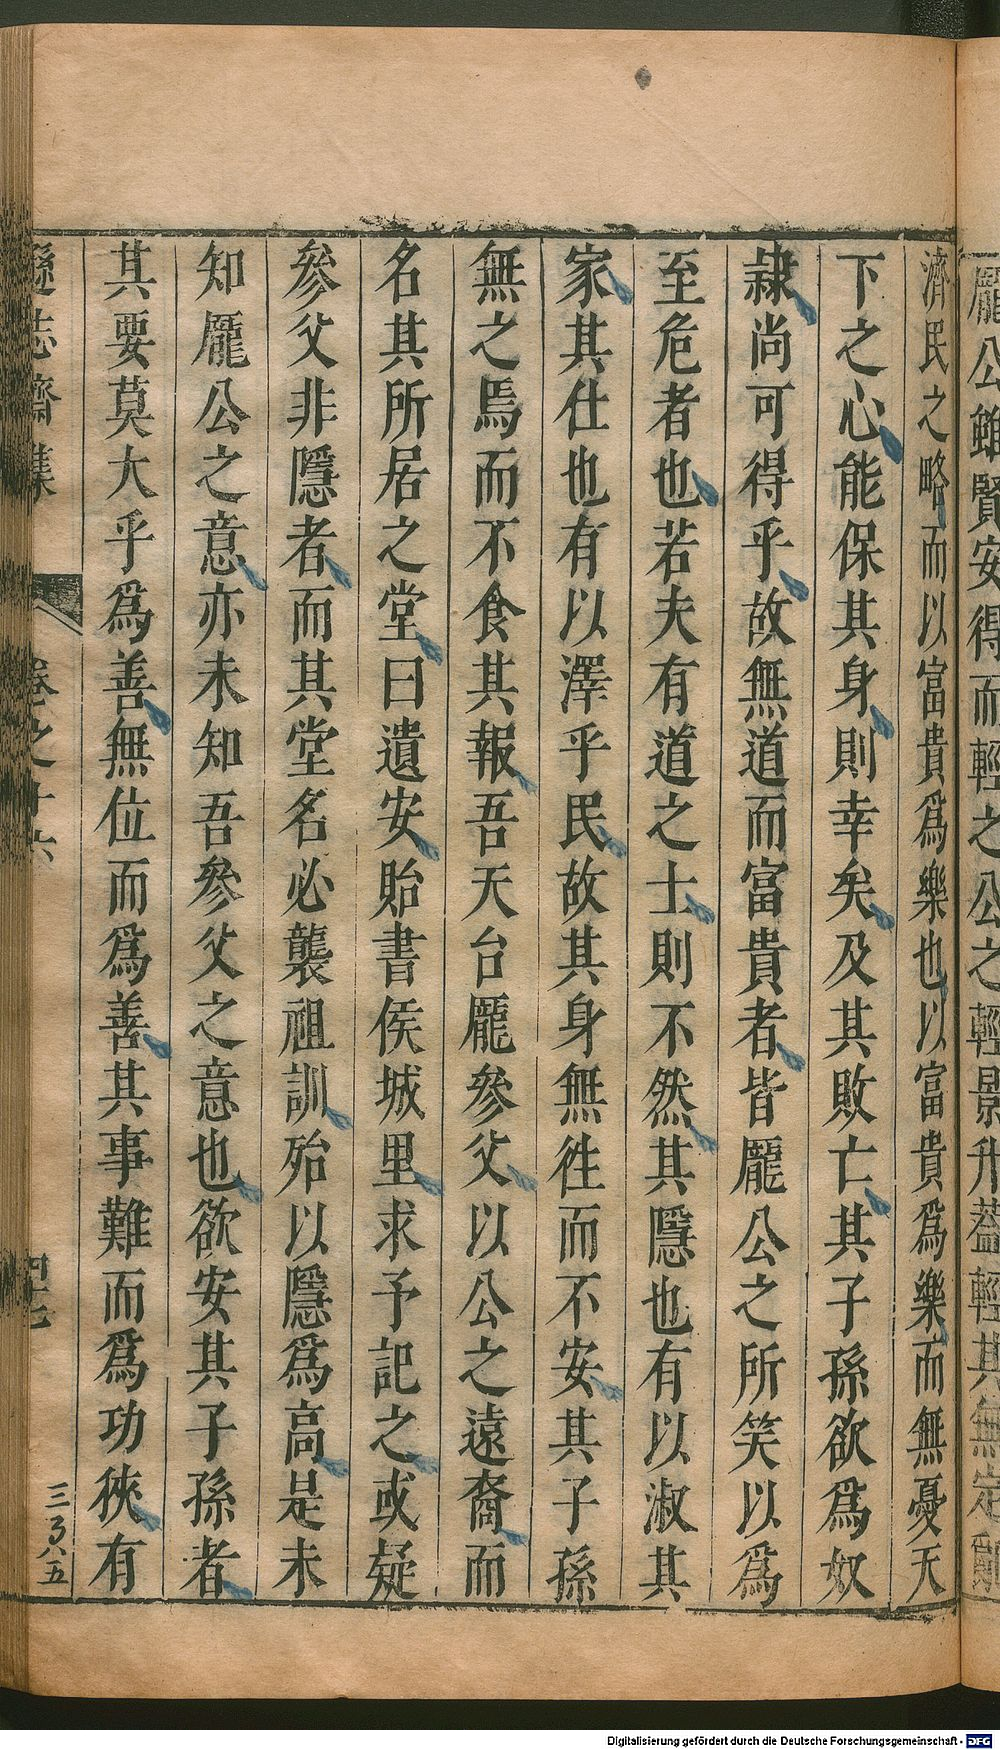 龎公雖賢安得而輕之公之輕景升葢輕其無定
濟民之略而以富貴爲樂也以富貴爲樂而無憂天
下之心能保其身則幸矣及其敗亡其子孫欲爲奴
隷尚可得乎故無道而富貴者皆龎公之所笑以爲
至危者也若夫有道之士則不然其隱也有以淑其
家其仕也有以澤乎民故其身無徃而不安其子孫
無之焉而不食其報吾天台龎參父以公之遠裔而
名其所居之堂曰遺安貽書侯城里求予記之或疑
參父非隱者而其堂名必襲祖訓殆以隱爲高是未
知龎公之意亦未知吾參父之意也欲安其子孫者
其要莫大乎爲善無位而爲善其事難而爲功狹有
遜志齋集
卷之十六
四七
三百八五
Digitalisierung gefördert durch die Deutsche Forschungsgemeinschaft - DFG